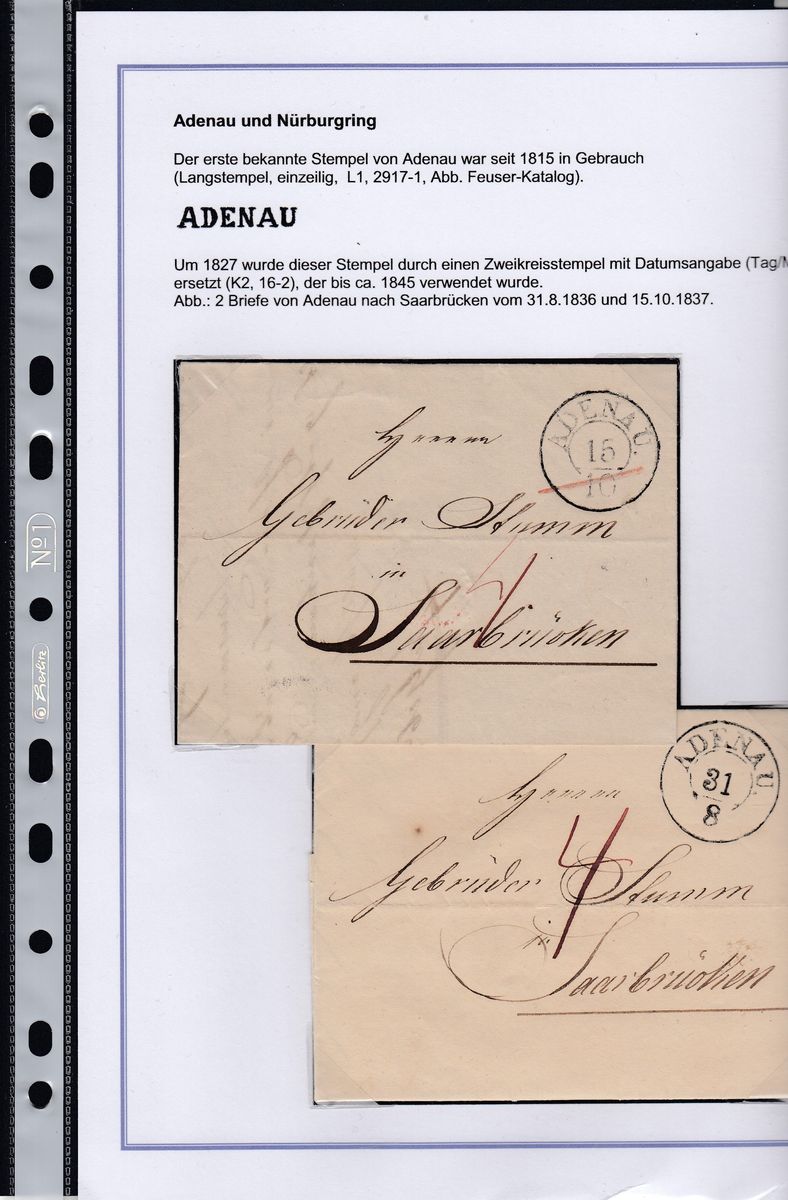 Adenau und Nürburgring
Der erste bekannte Stempel von Adenau war seit 1815 in Gebrauch
(Langstempel, einzeilig, L1, 2917-1, Abb. Feuser-Katalog).
ADENAU
Um 1827 wurde dieser Stempel durch einen Zweikreisstempel mit Datumsangabe (Tag/M
ersetzt (K2, 16-2), der bis ca. 1845 verwendet wurde.
Abb.: 2 Briefe von Adenau nach Saarbrücken vom 31.8.1836 und 15.10.1837.
ADENAU.
15
10
Herren
Gebrüder Stumm
in
4
Saarbrücken
ADENAU.
31
8
Herren
Gebrüder Stumm
4
in
Saarbrücken
No 1
© Berlitz